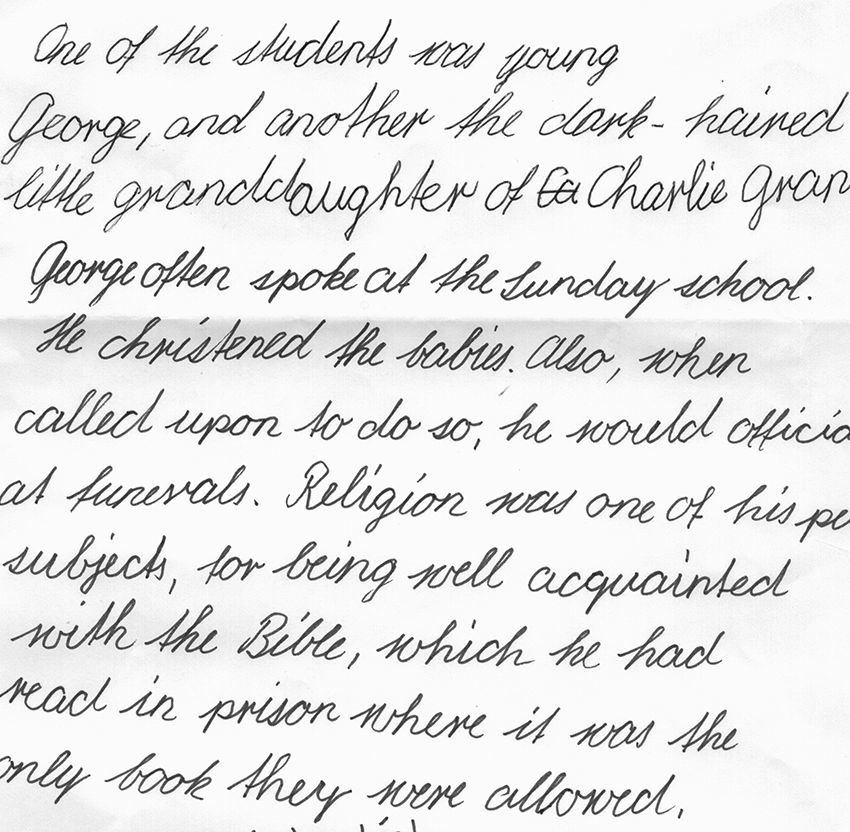 One of the students was young
George, and another the dark-haired
little granddaughter of Ca Charlie Gran
George often spoke at the Sunday school.
He christened the babies. Also, when
called upon to do so, he would officia
at funerals. Religion was one of his pe
subjects, for being well acquainted
with the Bible, which he had
read in prison where it was the
only book they were allowed.